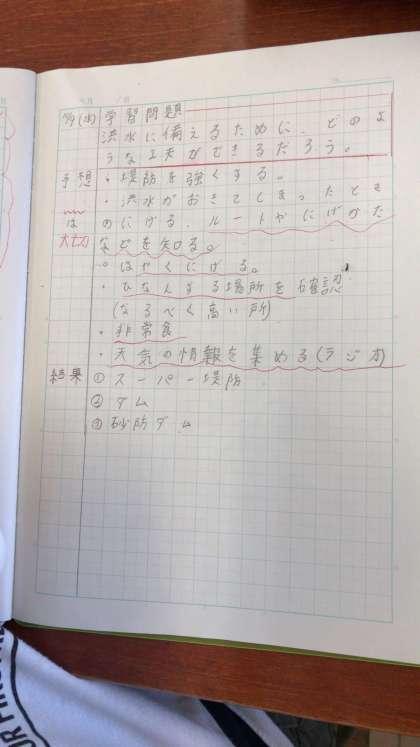 (水) 学習問題
洪水に備えるために、どのよ
うな工夫ができるだろう。
予想 ・堤防を強くする。
・洪水がおきてしまったとき
は のにげる、ルートやにげかた
大切 などを知る。
・はやくにげる。
・ひなんする場所を確認
(なるべく高い所)
・非常食
・天気の情報を集める(ラジオ)
結果 ①スーパー堤防
②ダム
③砂防ダム